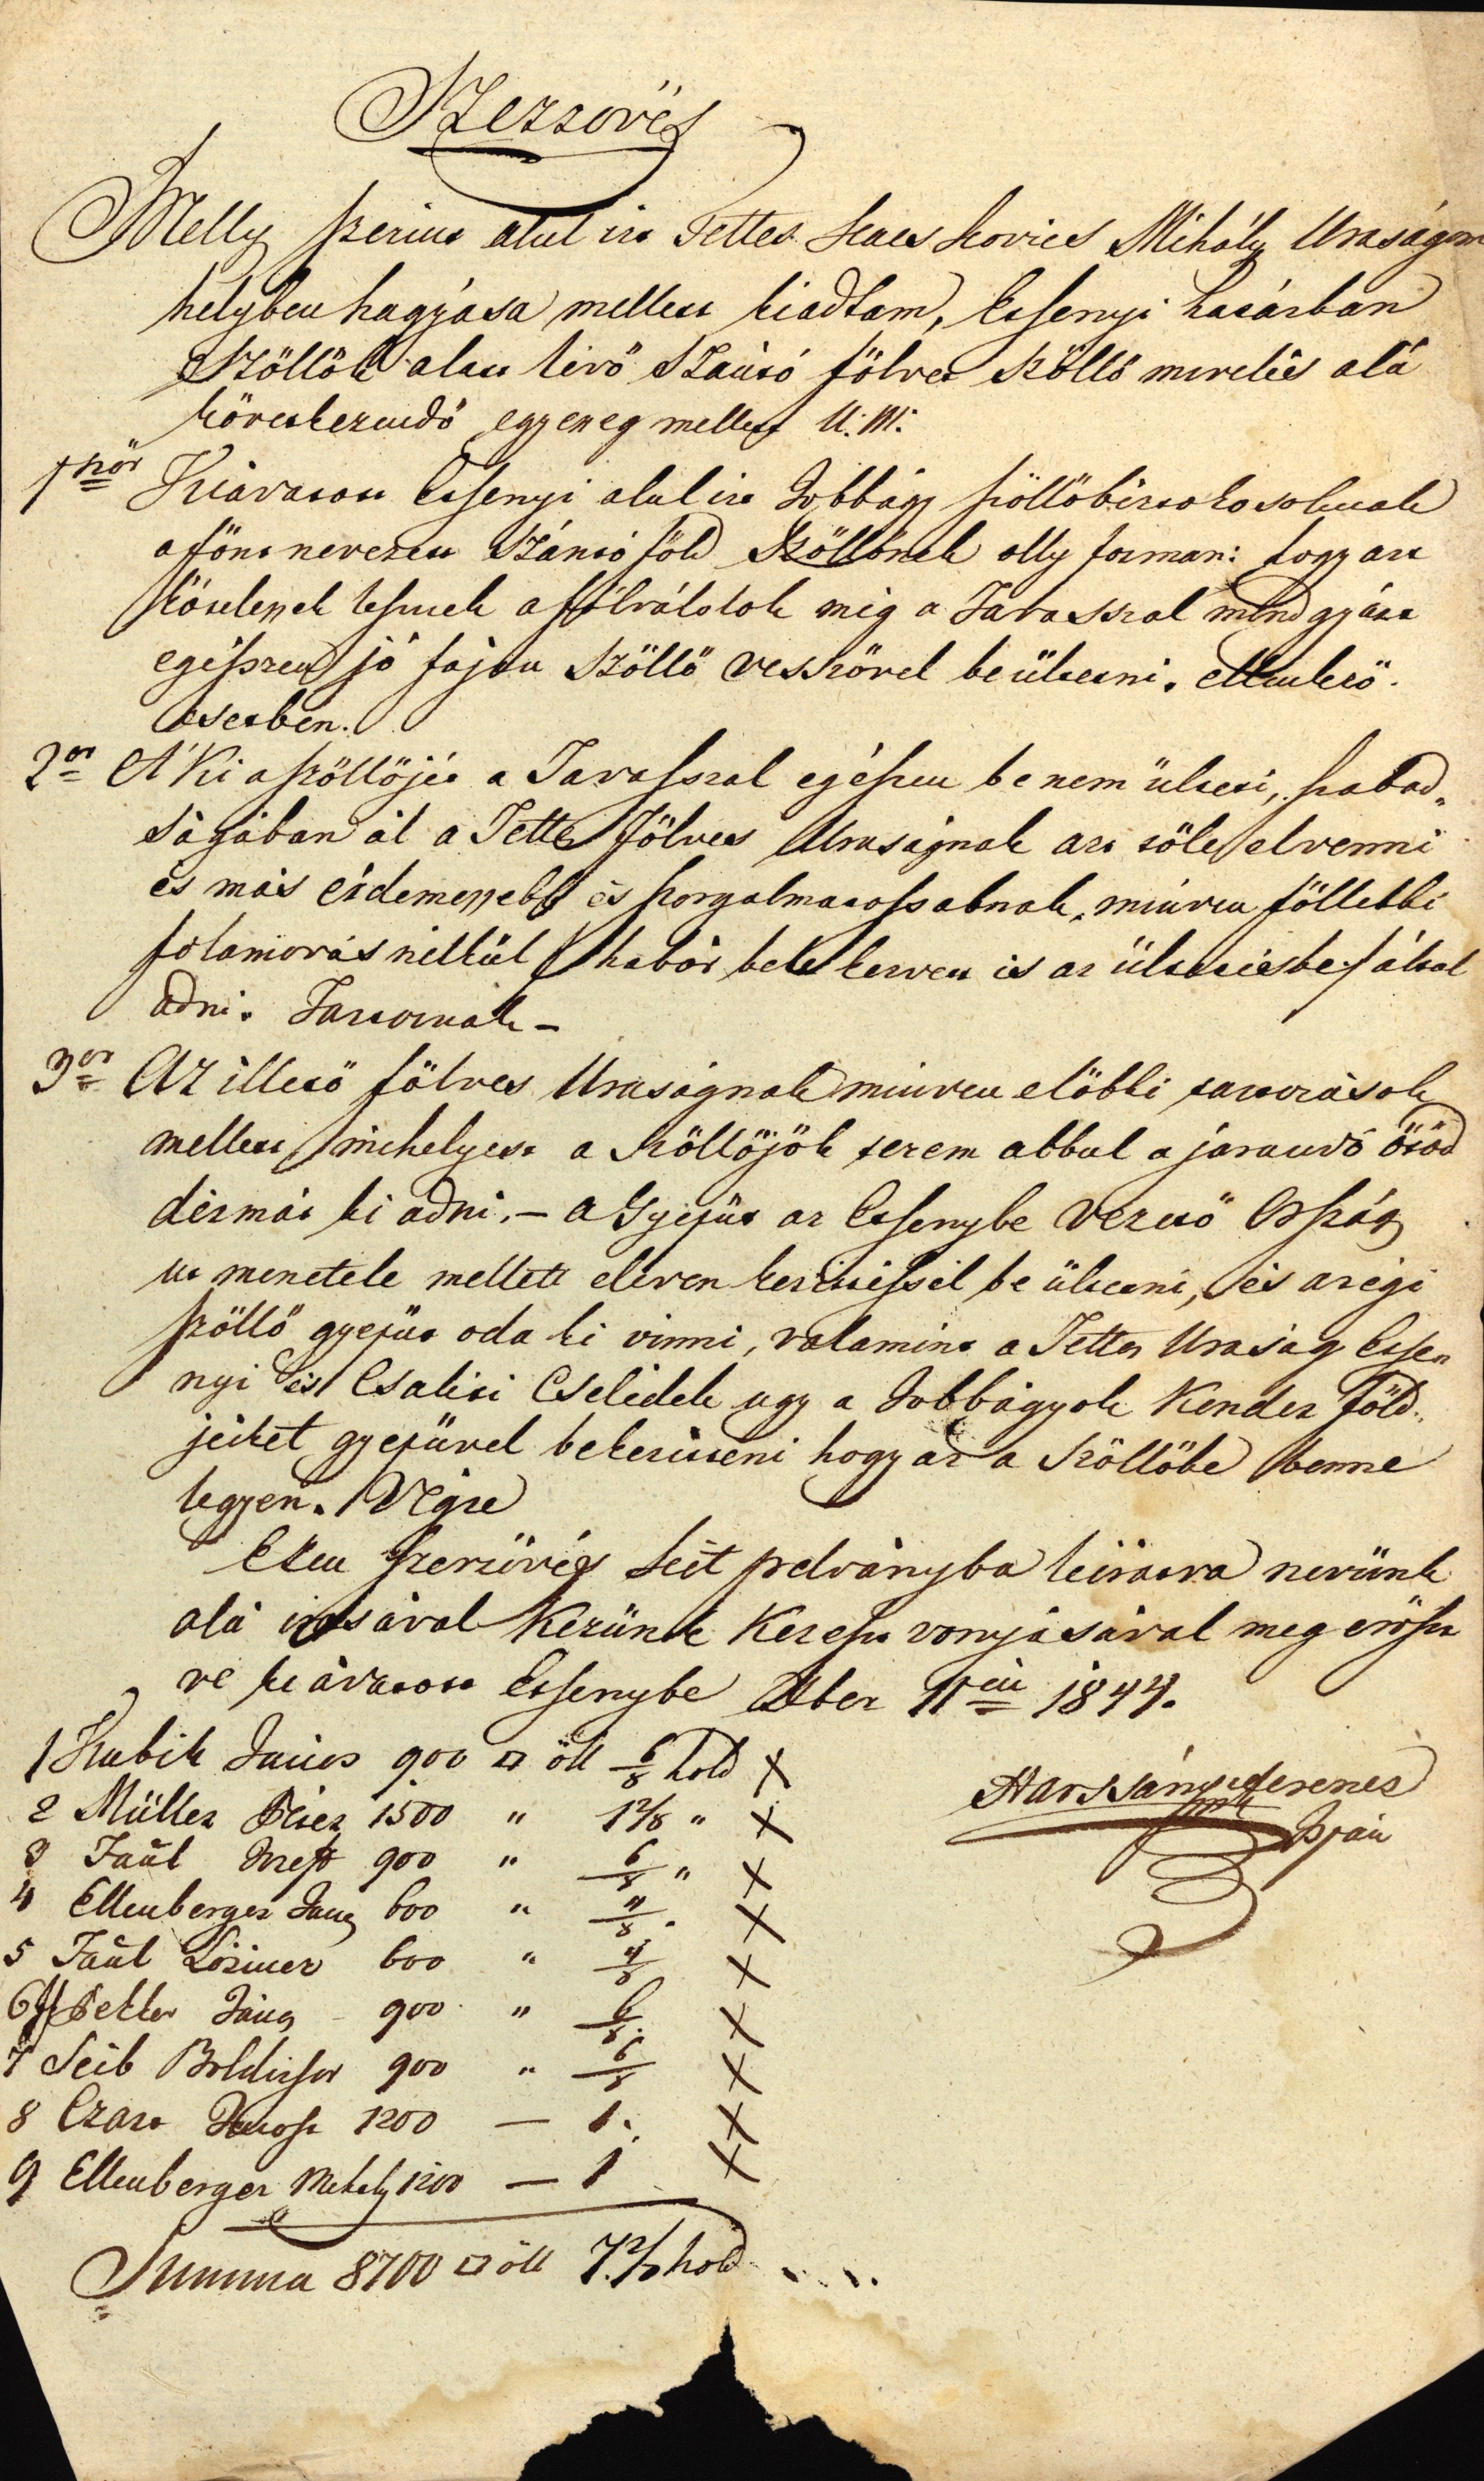 Szerzövés
Melly szerint alul irt Tettes Kacskovics Mihály Uraságom
helyben hagyása mellett kiadtam, Essenyi határban
Szöllök alatt lévö Szántó fölvet szöllö mivelés alá
következendö egyezeg mellett U. M.
1ször Kiávatott Essenyi alul irt Jobbágy szöllöbirtokosoknak
a fönt nevezett Szántó föld Szöllönek olly forman: hogy azt
kötelesek lesznek a fölválolok mig a Tavasszal mindgyárt
egészen jó fajtu szöllö vesszövel beültetni. Ellenkezö
esetben.
2or A'Ki a szöllöjét a Tavasszal egészen be nem ülteti, szabad„
ságában ál a Tettes Fölves Uraságnak azt töle elvenni
és más érdemessebb és szorgalmatossabnak, minven föllebbi
folamovás nélkül / habár bele kerven is az ültetésbe / által
adni. Tartoznak –
3or Az illetö fölves Uraságnak minven elöbbi tartozások
mellett mihelyest a szöllöjök terem abbul a járandó ötöd
dézmát ki adni. – a Gyepüt az Essenybe vezetö Ország
ut menetele mellett eleven kerittéssel be ültetni, és a régi
szöllö gyepüt oda ki vinni, valamint a Tettes Uraság Essen„
nyi és Csaliti Cselédek ugy a Jobbágyok Kender föld„
jeiket gyepüvel bekeritteni hogy az a Szöllöbe benne
legyen. Végre
Ezen szerzövés két pelványba kiiratva nevünk
alá irásával Kezünk Kereszt vonyásával meg erösit
ve kiávatott Essenybe Xber 11én 1844.
1 Kubik János 900 □ öll 6/8 hold X
2 Müller Péter 1500 " 1 2/8 " X
3 Taúl Josef 900 " 6/8 " X
4 Ellenberger Janos 600 " 4/8 . X
5 Taúl Lörincz 600 " 4/8 X
6 Petter János 900 " 6/8. X
7 Leib Boldisar 900 " 6/8 X
8 1200 — 1. X
9 Ellenberger Mihaly 1200 — 1 X
Summa 8700 □ öll 7. 2/8 hold
Harsányi Ferencz
mk
Ispán